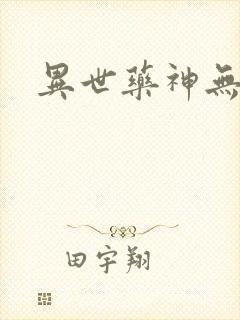 異世藥神無
田宇翔